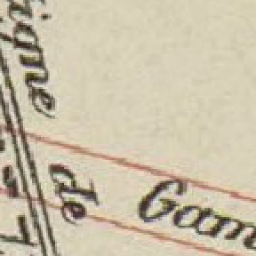 igne de
Gam